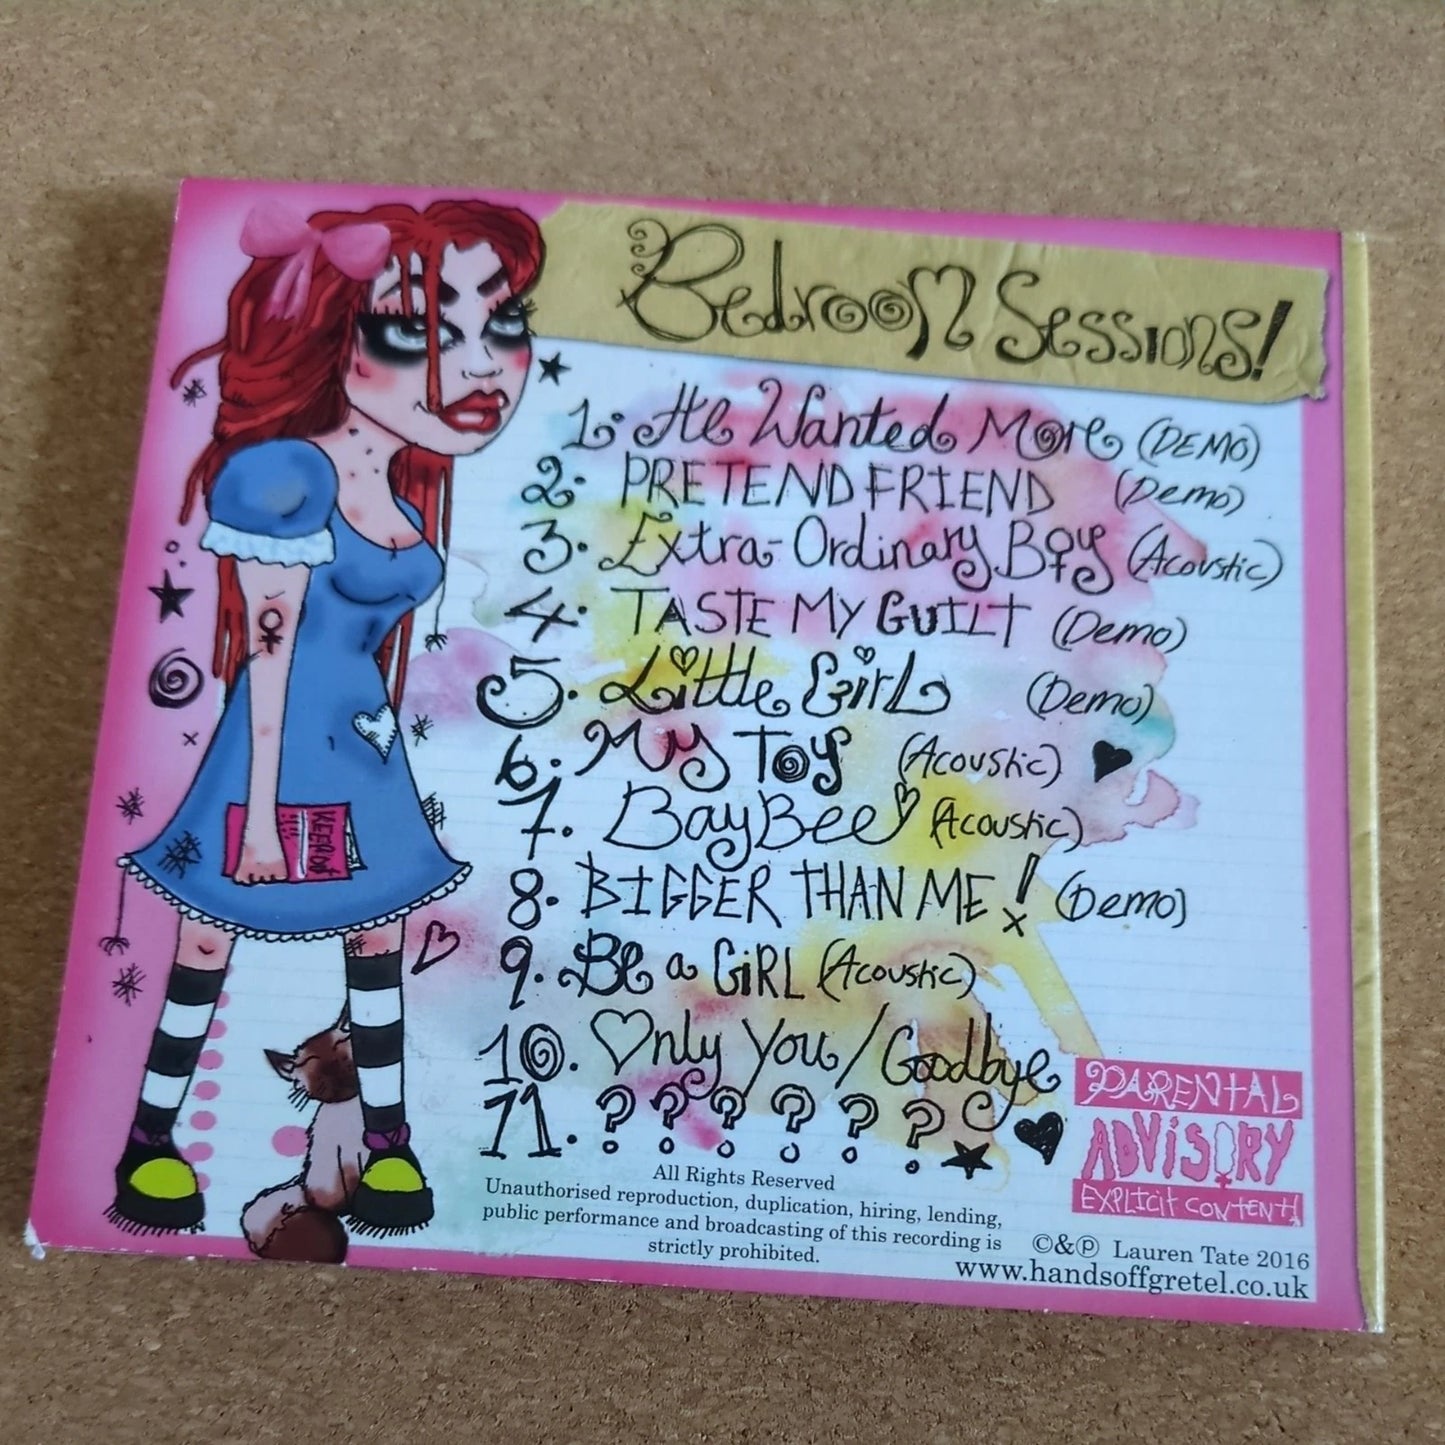 Bedroom Sessions!
1. He Wanted More (DEMO)
2. PRETEND FRIEND (Demo)
3. Extra-Ordinary Boy (Acoustic)
4. TASTE MY GUILT (Demo)
5. Little Girl (Demo)
6. My Toy (Acoustic)
7. BayBee (Acoustic)
8. BIGGER THAN ME! (Demo)
9. Be a GiRL (Acoustic)
10. Only You/Goodbye
11. ? ? ? ? ? ?
PARENTAL
ADViSORY
EXPLICIT CONTENT!
All Rights Reserved
Unauthorised reproduction, duplication, hiring, lending,
public performance and broadcasting of this recording is
strictly prohibited.
©&℗ Lauren Tate 2016
www.handsoffgretel.co.uk